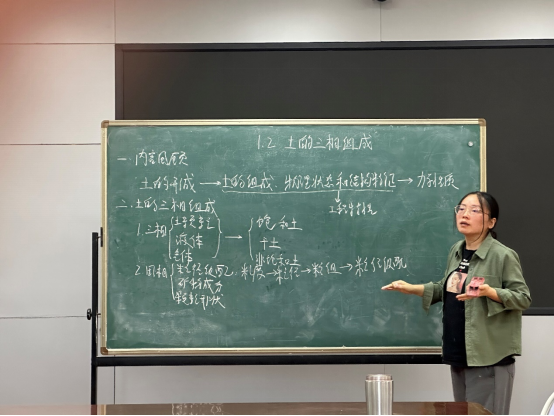 1.2 土的三相组成
一.内容回顾
土的形成→土的组成、物理状态和结构特征→力学性质
二.土的三相组成
1.三相{土颗粒 液体 气体→{饱和土 干土 非饱和土
2.固相{粒径级配:粒度→粒径→粒组→粒径级配
矿物成分
颗粒形状